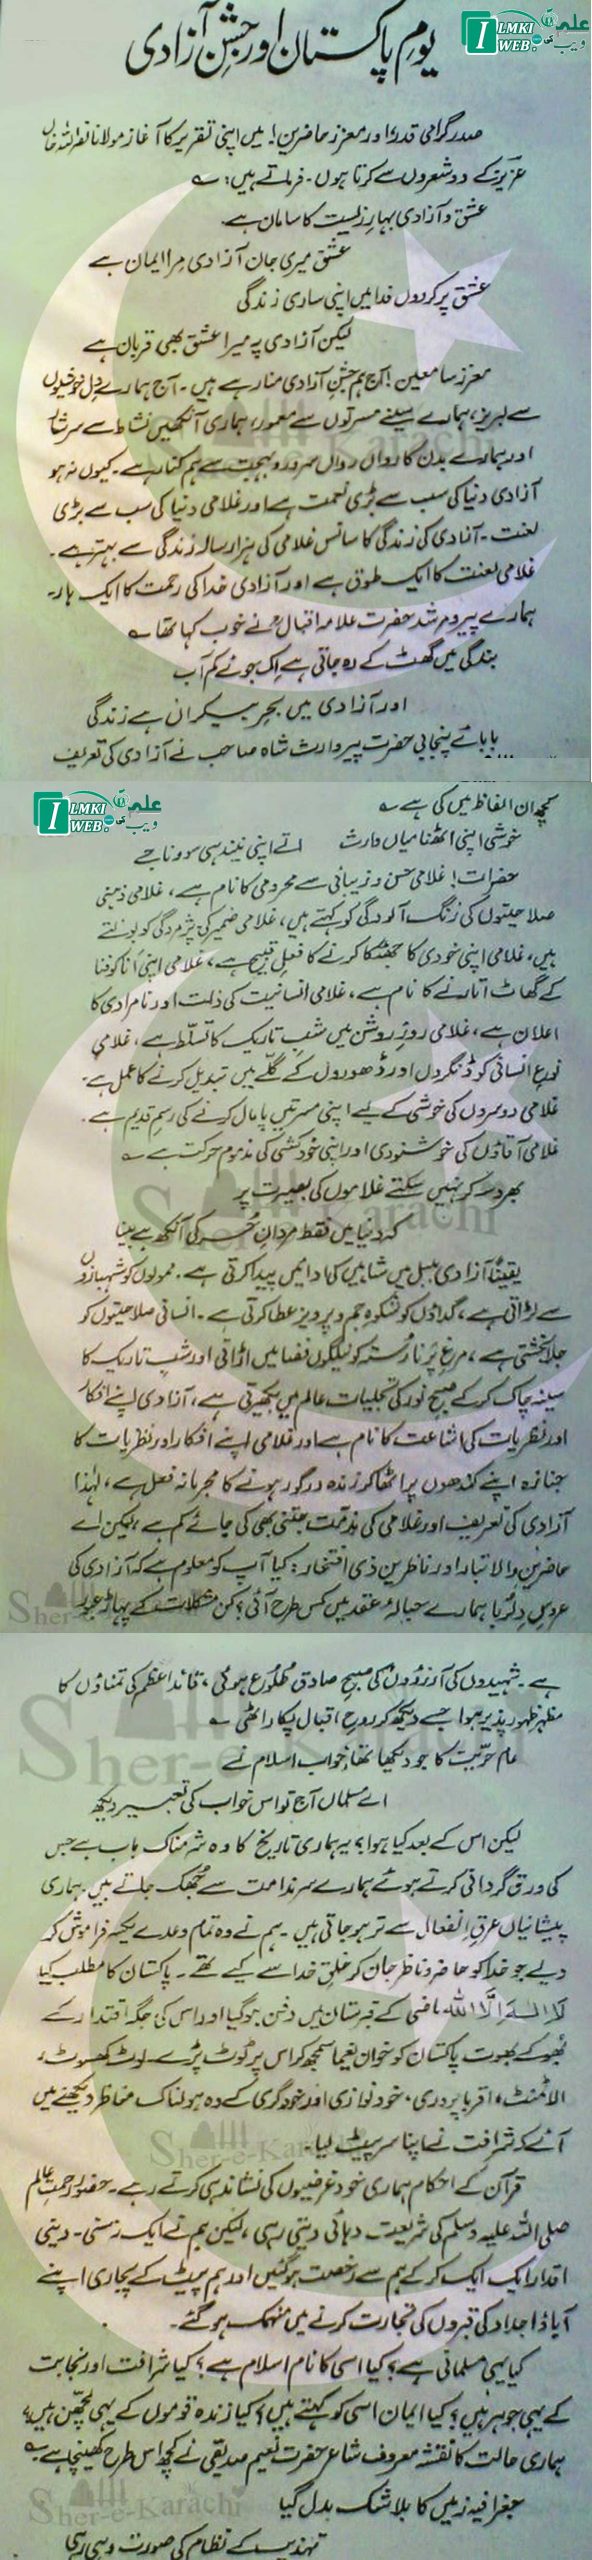 یومِ پاکستان اور جشنِ آزادی
ILMKI WEB علم کی ویب
صدر گرامی قدر! اور معزز حاضرین! میں اپنی تقریر کا آغاز مولانا نصر اللہ خاں
عزیز کے دو شعروں سے کرتا ہوں۔ فرماتے ہیں:
عشق و آزادی بہارِ زیست کا سامان ہے
عشق میری جان آزادی مرا ایمان ہے
عشق پر کر دوں فدا میں اپنی ساری زندگی
لیکن آزادی پہ میرا عشق بھی قربان ہے
معزز سامعین! آج ہم جشنِ آزادی منا رہے ہیں۔ آج ہمارے دل خوشیوں
سے لبریز، ہمارے سینے مسرتوں سے معمور، ہماری آنکھیں نشاط سے سرشار
اور ہمارے بدن کا رواں رواں سرور و بہجت سے ہمکنار ہے۔ کیوں نہ ہو
آزادی دنیا کی سب سے بڑی نعمت ہے اور غلامی دنیا کی سب سے بڑی
لعنت۔ آزادی کی زندگی کا سانس غلامی کی ہزار سالہ زندگی سے بہتر ہے۔
غلامی لعنت کا ایک طوق ہے اور آزادی خدا کی رحمت کا ایک ہار۔
ہمارے پیر و مرشد حضرت علامہ اقبالؒ نے خوب کہا تھا
بندگی میں گھٹ کے رہ جاتی ہے اک جوئے کم آب
اور آزادی میں بحرِ بیکراں ہے زندگی
بابائے پنجابی حضرت پیر وارث شاہ صاحب نے آزادی کی تعریف
ILMKI WEB علم کی ویب
کچھ ان الفاظ میں کی ہے
خوشی اپنی اٹھنا میاں وارث اتے اپنی نیند ہی سوونا جے
حضرات! غلامی حسن و زیبائی سے محرومی کا نام ہے، غلامی ذہنی
صلاحیتوں کی زنگ آلودگی کو کہتے ہیں، غلامی ضمیر کی پژمردگی کو بولتے
ہیں، غلامی اپنی خودی کا جھٹکا کرنے کا فعلِ قبیح ہے، غلامی اپنی انا کو فنا
کے گھاٹ اتارنے کا نام ہے، غلامی انسانیت کی ذلت اور نامرادی کا
اعلان ہے، غلامی روزِ روشن میں شبِ تاریک کا تسلط ہے، غلامی
نوعِ انسانی کو ڈنگروں اور ڈھوروں کے گلّے میں تبدیل کرنے کا عمل ہے۔
غلامی دوسروں کی خوشی کے لیے اپنی مسرتیں پامال کرنے کی رسمِ قدیم ہے۔
غلامی آقاؤں کی خوشنودی اور اپنی خودکشی کی مذموم حرکت ہے
بھروسہ کر نہیں سکتے غلاموں کی بصیرت پر
کہ دنیا میں فقط مردانِ حُر کی آنکھ ہے بینا
یقیناً آزادی بلبل میں شاہیں کی ادائیں پیدا کرتی ہے۔ ممولوں کو شہبازوں
سے لڑاتی ہے، گداؤں کو شکوہِ جم و پرویز عطا کرتی ہے۔ انسانی صلاحیتوں کو
جلا بخشتی ہے، مرغِ پر نارُستہ کو نیلگوں فضا میں اڑاتی اور شبِ تاریک کا
سینہ چاک کر کے صبحِ نور کی تجلیات عالم میں بکھیرتی ہے، آزادی اپنے افکار
اور نظریات کی اشاعت کا نام ہے اور غلامی اپنے افکار اور نظریات کا
جنازہ اپنے کندھوں پر اٹھا کر زندہ درگور ہونے کا مجرمانہ فعل ہے، لہٰذا
آزادی کی تعریف اور غلامی کی مذمت جتنی بھی کی جائے کم ہے، لیکن اے
حاضرینِ والا تبار اور ناظرینِ ذی افتخار: کیا آپ کو معلوم ہے کہ آزادی کی
عروسِ دلربا ہمارے حبالۂ عقد میں کس طرح آئی؟ کن مشکلات کے پہاڑ عبور
ہے۔ شہیدوں کی آرزوؤں کی صبحِ صادق طلوع ہوئی، قائداعظم کی تمناؤں کا
مظہر ظہور پذیر ہوا جسے دیکھ کر روحِ اقبال پکار اٹھی
عام حریت کا جو دیکھا تھا خواب اسلام نے
اے مسلماں آج تو اس خواب کی تعبیر دیکھ
لیکن اس کے بعد کیا ہوا؟ یہ ہماری تاریخ کا وہ شرمناک باب ہے جس
کی ورق گردانی کرتے ہوئے ہمارے سر ندامت سے جُھک جاتے ہیں۔ ہماری
پیشانیاں عرقِ انفعال سے تر ہو جاتی ہیں۔ ہم نے وہ تمام وعدے یکسر فراموش کر
دیے جو خدا کو حاضر و ناظر جان کر خلقِ خدا سے کیے تھے۔ پاکستان کا مطلب کیا
لَا اِلٰہَ اِلَّا اللہ ماضی کے قبرستان میں دفن ہو گیا اور اس کی جگہ اقتدار کے
بُھوکے بھوت پاکستان کو خوانِ یغما سمجھ کر اس پر ٹوٹ پڑے۔ لوٹ کھسوٹ،
الاٹمنٹ، اقربا پروری، خود نوازی اور خودگری کے وہ ہولناک مناظر دیکھنے میں
آئے کہ شرافت نے اپنا سر پیٹ لیا۔
قرآن کے احکام ہماری خودغرضیوں کی نشاندہی کرتے رہے۔ حضور رحمتِ عالم
صلی اللہ علیہ وسلم کی شریعت دہائی دیتی رہی، لیکن ہم نے ایک نہ سنی۔ دینی
اقدار ایک ایک کر کے ہم سے رخصت ہو گئیں اور ہم پیٹ کے پجاری اپنے
آباؤ اجداد کی قبروں کی تجارت کرنے میں منہمک ہو گئے۔
کیا یہی مسلمانی ہے؟ کیا اسی کا نام اسلام ہے؟ کیا شرافت اور نجابت
کے یہی جوہر ہیں؟ کیا ایمان اسی کو کہتے ہیں؟ کیا زندہ قوموں کے یہی لچھن ہیں؟
ہماری حالت کا نقشہ معروف شاعر حضرت نعیم صدیقی نے کچھ اس طرح کھینچا ہے
جغرافیہ زمیں کا بلاشک بدل گیا
تہذیب کے نظام کی صورت وہی رہی
Sher-e-Karachi